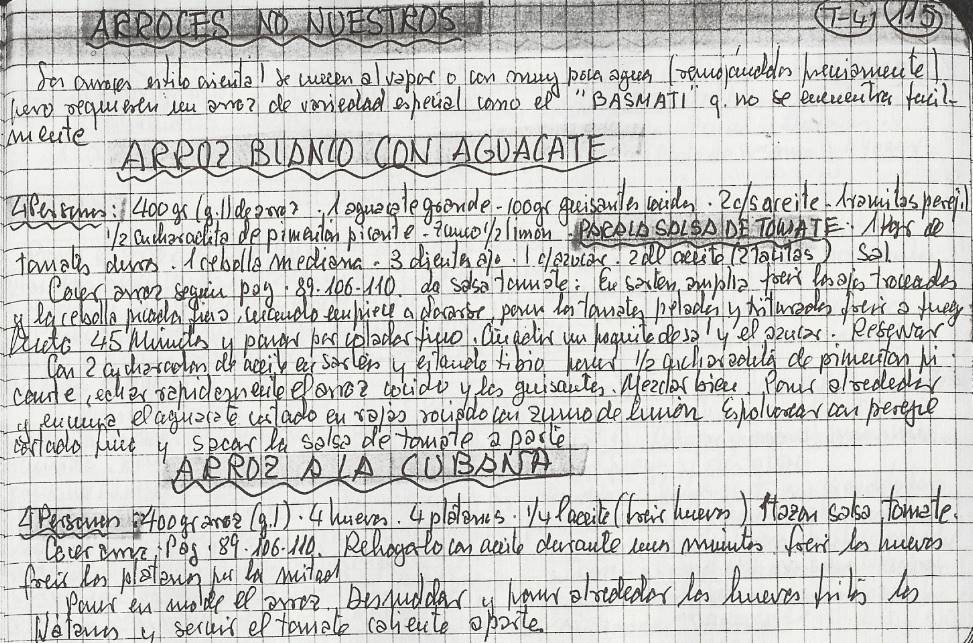 ARROCES NO NUESTROS T-41 115
Los arroces estilo oriental se cuecen al vapor o con muy poca agua (remojandolos previamente)
pero requieren un arroz de variedad especial como el "BASMATI" q. no se encuentra facil-
mente
ARROZ BLANCO CON AGUACATE
4 Personas: 400 gr (g.l) de arroz. 1 aguacate grande - 100 gr guisantes cocidos. 2 c/s aceite. 1 ramitas perejil
1/2 cucharadita de pimenton picante - zumo 1/2 limon - PARA LA SALSA DE TOMATE: 1 Kgr de
tomates duros. 1 cebolla mediana. 3 dientes ajo. 1 c/azucar. 2 dl aceite (2 tacitas) Sal
Cocer arroz según pag. 89-106-110. La salsa tomate: En sarten amplia freir los ajos troceados
y la cebolla picada fino, cuando empiece a dorarse, poner los tomates pelados y triturados freir a fuego
lento 45 minutos y pasar por colador fino. Añadir un poquito de sal y el azucar. Reservar
Con 2 cucharadas de aceite en sarten y estando tibio poner 1/2 cucharadita de pimenton pi-
cante, echar rapidamente el arroz cocido y los guisantes. Mezclar bien. Poner alrededor
y encima el aguacate cortado en rajas rociado con zumo de limón Espolvorear con perejil
cortado fino y sacar la salsa de tomate a parte
ARROZ A LA CUBANA
4 Personas: 400 gr arroz (g.l). 4 huevos. 4 platanos. 1/4 l aceite (freir huevos) salsa tomate.
Cocer arroz: Pag. 89-106-110. Rehogarlo con aceite durante unos minutos freir los huevos
freir los platanos por la mitad
Poner en molde el arroz. Desmoldar y poner alrededor los huevos fritos los
platanos y servir el tomate caliente aparte